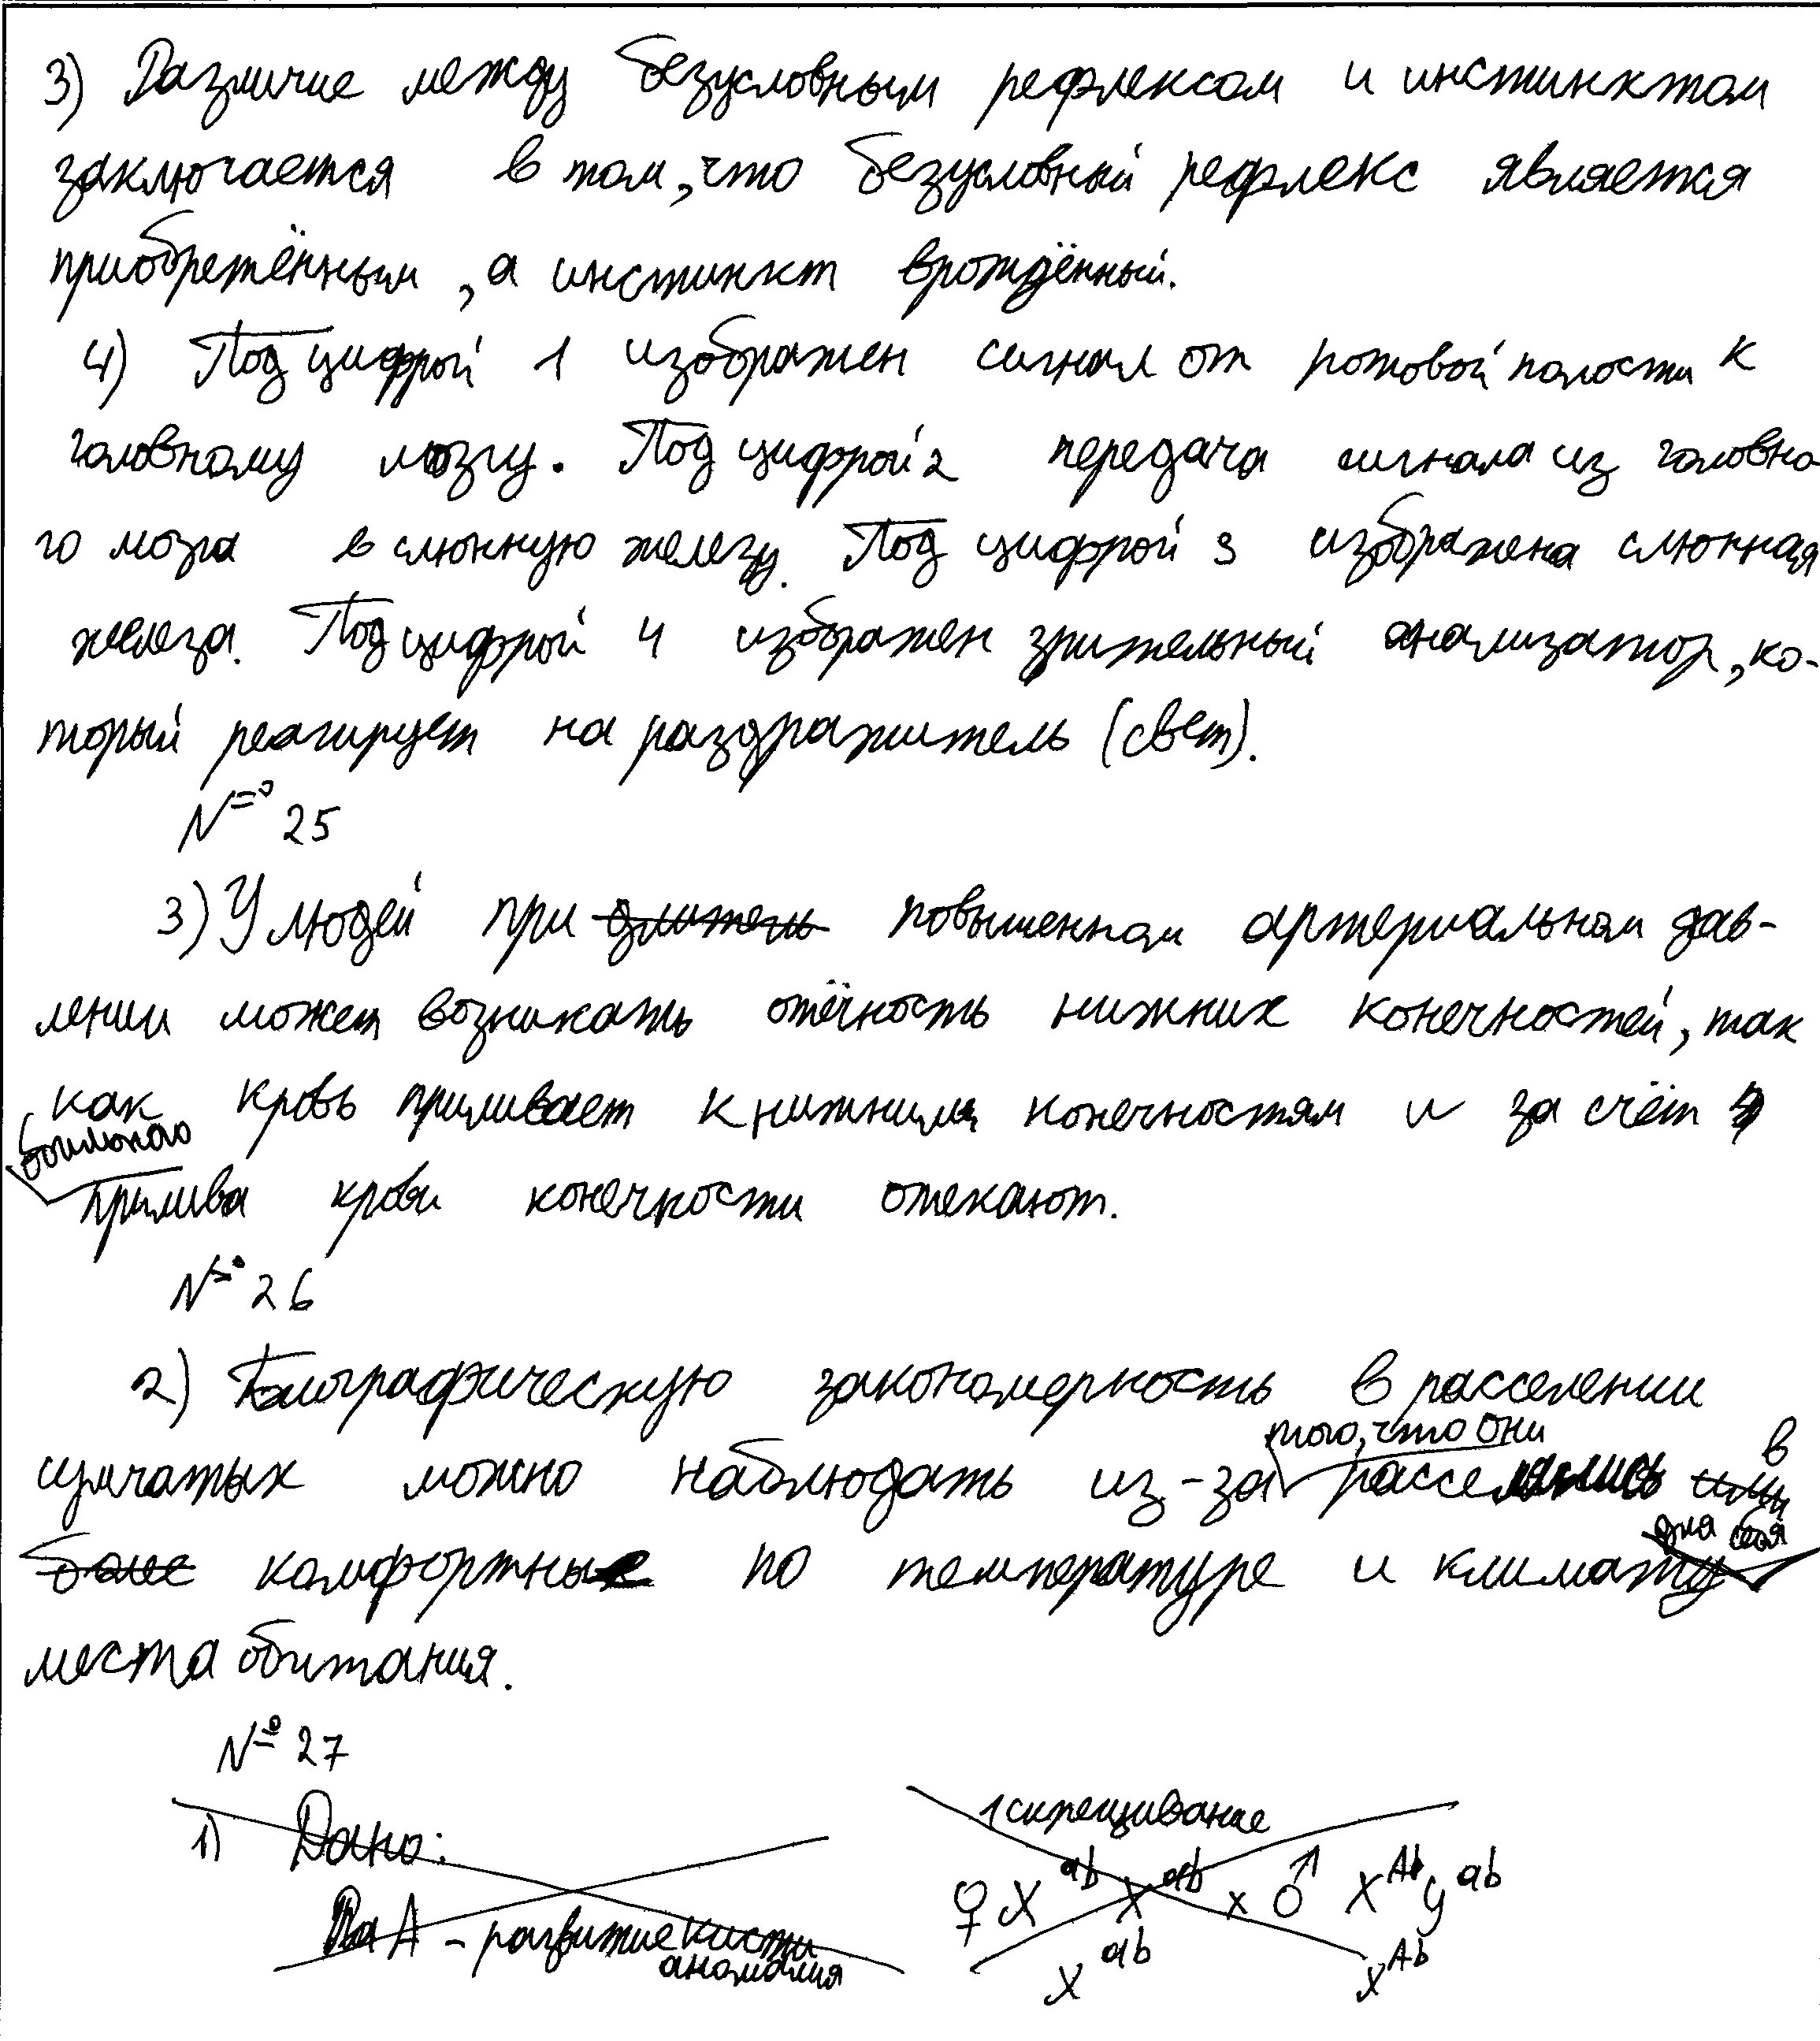 3) Различие между безусловным рефлексом и инстинктом
заключается в том, что безусловный рефлекс является
приобретённым, а инстинкт врождённый.
4) Под цифрой 1 изображен сигнал от ротовой полости к
головному мозгу. Под цифрой 2 передача сигнала из головно-
го мозга в слюнную железу. Под цифрой 3 изображена слюнная
железа. Под цифрой 4 изображен зрительный анализатор, ко-
торый реагирует на раздражитель (свет).
№ 25
3) У людей при повышенном артериальном дав-
лении может возникать отёчность нижних конечностей, так
как кровь приливает к нижним конечностям и за счёт
обильного
прилива крови конечности отекают.
№ 26
2) Биографическую закономерность в расселении
того, что они в
сумчатых можно наблюдать из-за расселялись или
для себя
более комфортные по температуре и климату
места обитания.
№ 27
1) Дано: 1 скрещивание
А - развитие кисти ♀ X^ab X^ab x ♂ X^Ab y^ab
аномалия X^ab X^Ab